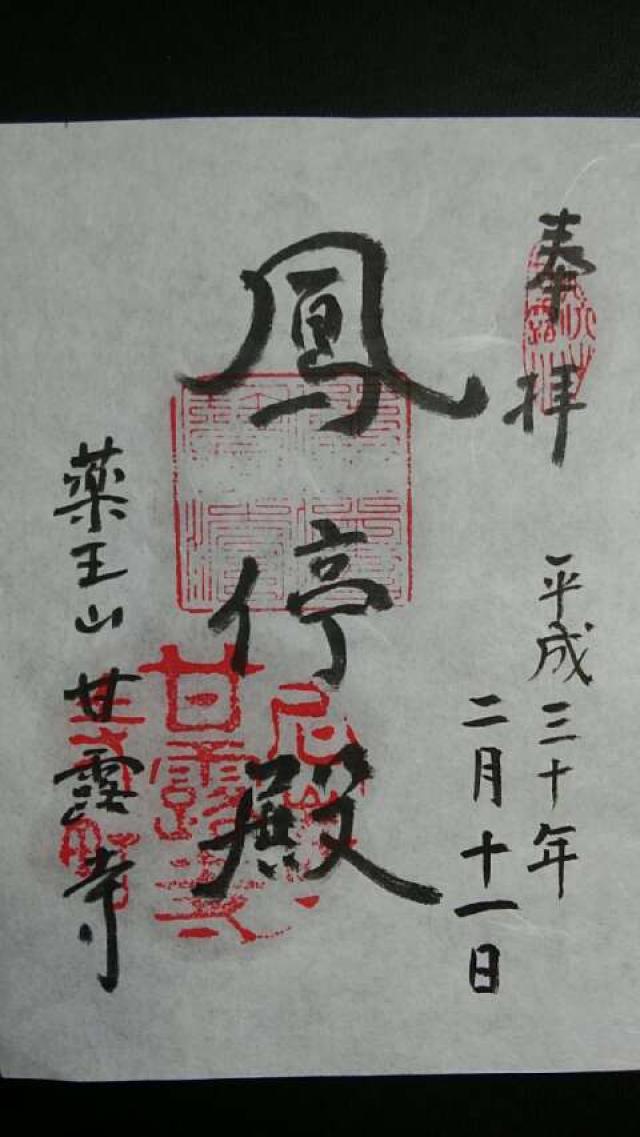 奉拝
平成三十年
二月十一日
鳳停殿
薬王山甘露寺